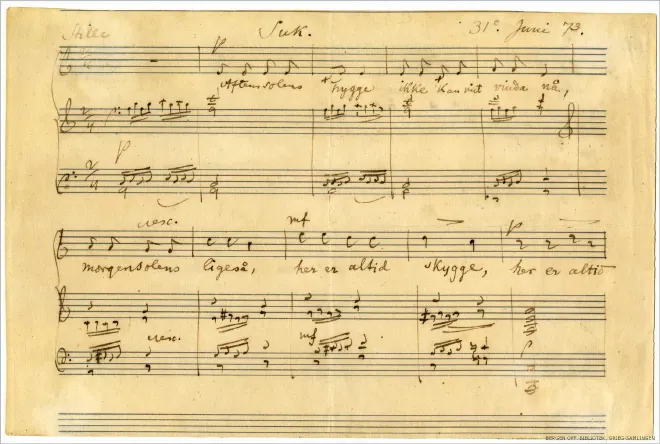 Stille Suk. 31te Juni 73.
p
Aftensolens hygge ikke kan vit vindu nå,
p
cresc. mf p
morgensolens ligeså, her er altid skygge, her er altid
cresc. mf
BERGEN OFF. BIBLIOTEK, GRIEG-SAMLINGEN